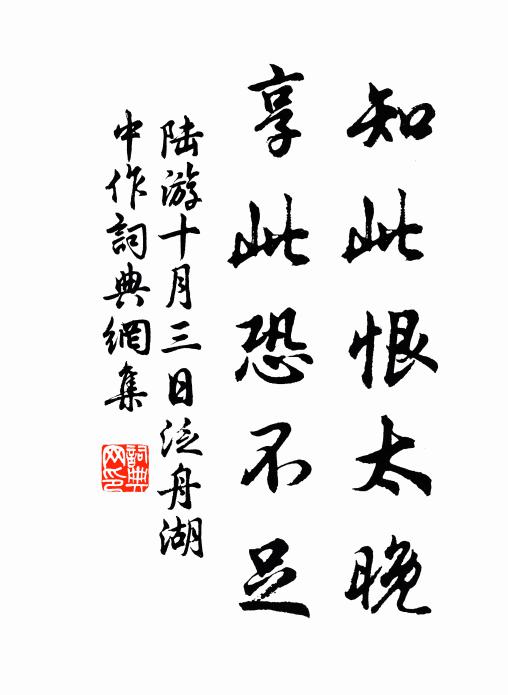 知此恨太晚
享此恐不足
陆游十月三日泛舟湖
中作詞典網集
詞典
网印